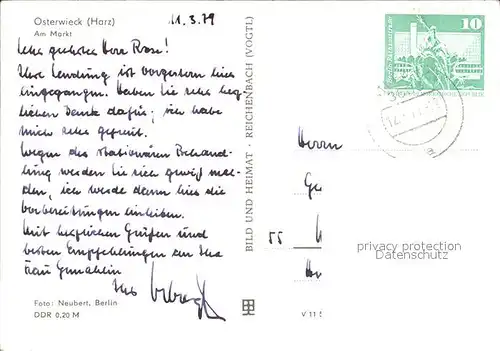 Osterwieck (Harz)
Am Markt
11.3.79
Sehr geehrter Herr Rose!
Ihre Sendung ist vorgestern hier
eingegangen. Haben Sie sehr herz-
lichen Dank dafür; ich habe
mich sehr gefreut.
Wegen der stationären Behand-
lung werden Sie sich gewiß mel-
den, ich werde dann hier die
Vorbereitungen einleiten.
Mit herzlichen Grüßen und
besten Empfehlungen an Ihre
Frau Gemahlin
Ihr
Foto: Neubert, Berlin
DDR 0.20 M
BILD UND HEIMAT · REICHENBACH (VOGTL)
10
Herrn
55
V 11
privacy protection
Datenschutz